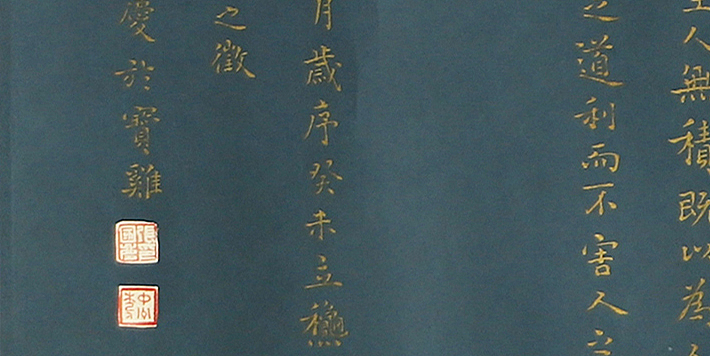 人無積既以為
之道利而不害人之
月歲序癸未立穐
之徵
慶於寶雞